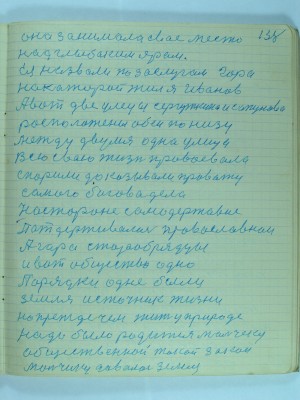 138
она занимала свае место
над глыбоким яром.
Её назвали по заслугам Гора
на каторай жил Иванов
А вот две улицы
расположены обеи по низу
между двумя одна улица
Всю сваю жизнь правоевала
спорили доказывали правату
самого бога вадела
На стороне самодержавие
Паддерживали православнай
А гара старообрядцы
и вот общество одно
Порядки одне были
земля источник жизни
но прежде чем жить у природе
Надо было родится мальчику
общественной такой закон
мальчику давали землю